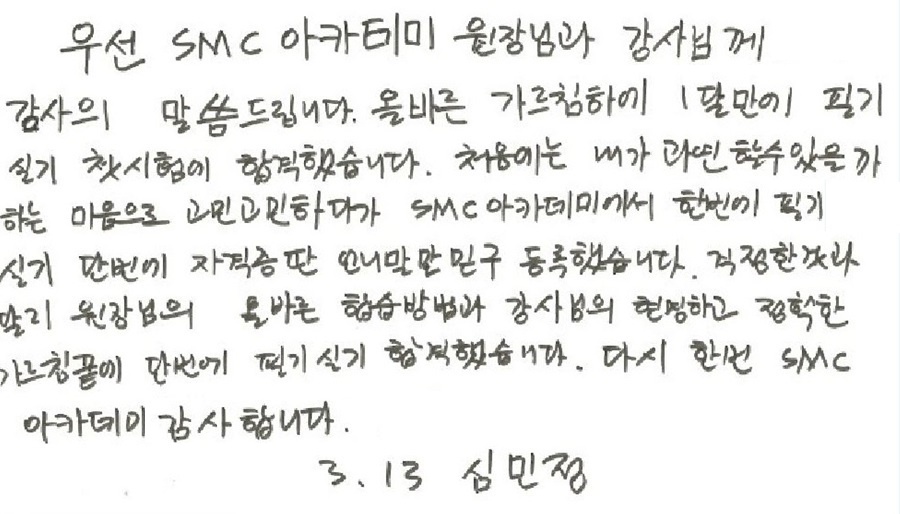 우선 SMC 아카데미 원장님과 강사님께
감사의 말씀드립니다. 올바른 가르침하에 1달만에 필기
실기 첫시험에 합격했습니다. 처음에는 내가 과연할수있을까
하는 마음으로 고민고민하다가 SMC아카데미에서 한번에 필기
실기 단번에 자격증딴 언니말만믿구 등록했습니다. 걱정한것과
달리 원장님의 올바른 학습방법과 강사님의 현명하고 정확한
가르침끝에 단번에 필기실기 합격했습니다. 다시 한번 SMC
아카데미 감사합니다.
3.13 심민정